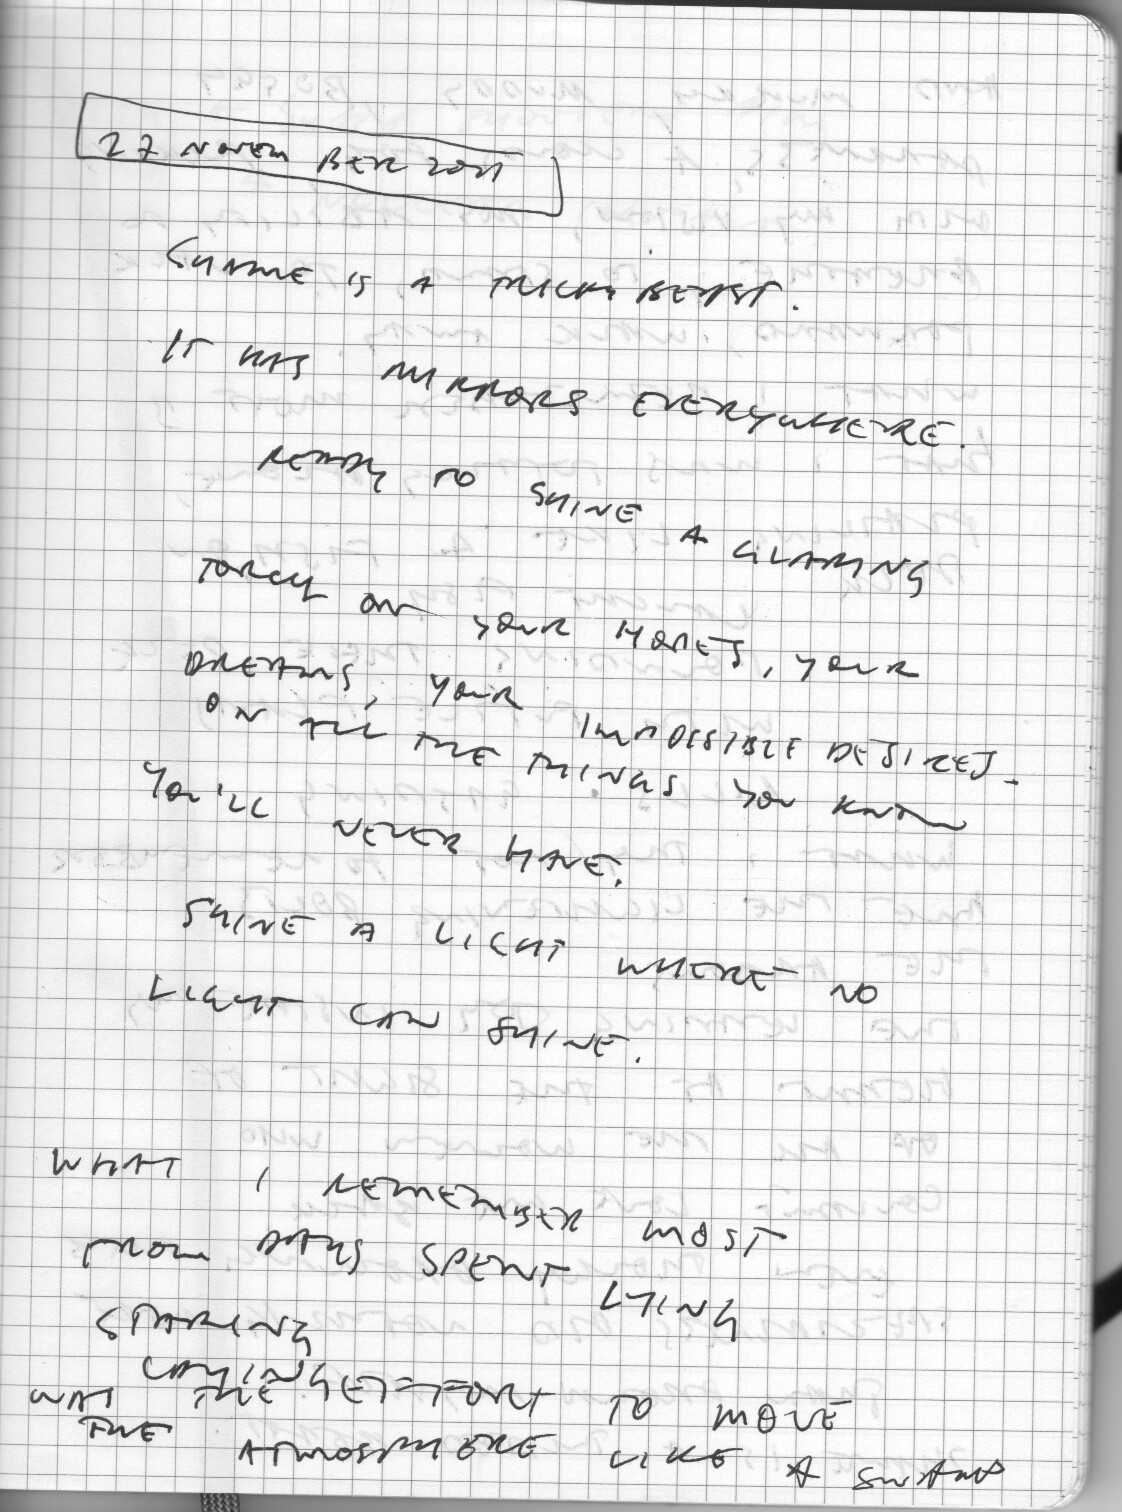 27 NOVEMBER 2011
SHAME IS A TRICKY BEAST.
IT HAS MIRRORS EVERYWHERE.
READY TO SHINE A GLARING
TORCH ON YOUR HOPES, YOUR
DREAMS, YOUR IMPOSSIBLE DESIRES.
ON ALL THE THINGS YOU KNOW
YOU'LL NEVER HAVE.
SHINE A LIGHT WHERE NO
LIGHT CAN SHINE.
WHAT I REMEMBER MOST
FROM DAYS SPENT LYING
STARING
CRYING
WAS THE EFFORT TO MOVE
THE ATMOSPHERE LIKE A SWAMP